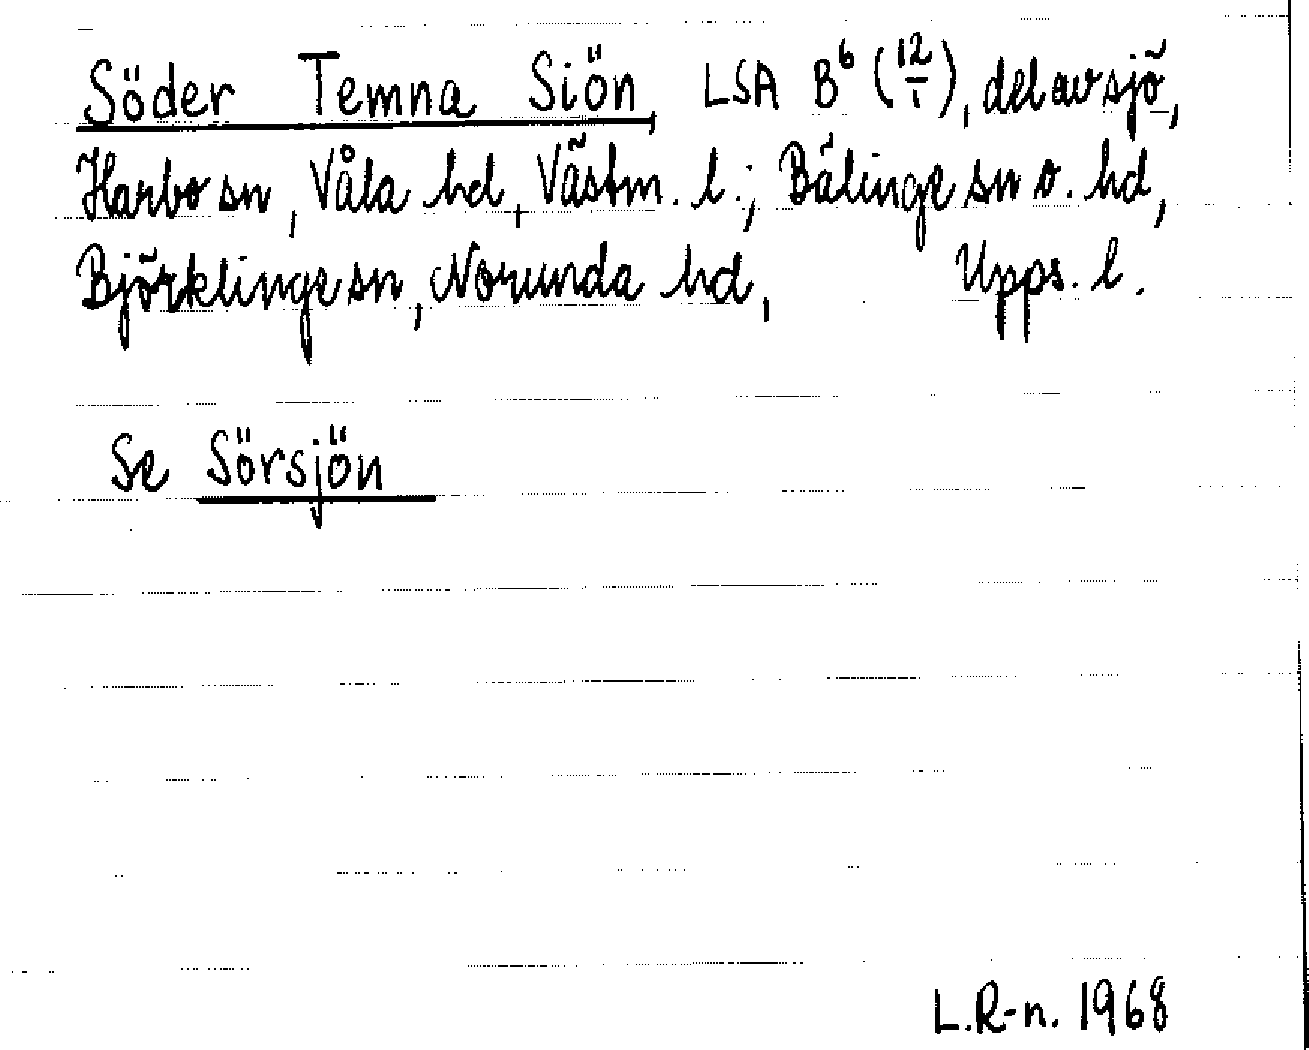 Söder Temna Siön, LSA B⁶ (12/1), del av sjö,
Harbo sn, Våla hd, Västm. l.; Bälinge sn o. hd,
Björklinge sn, Norunda hd, Upps. l.
Se Sörsjön
L.R-n. 1968